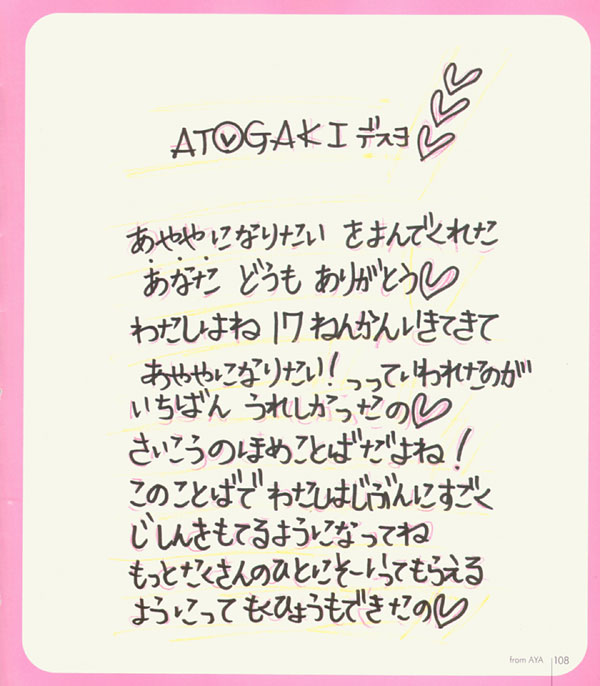 ATOGAKI デスヨ
あややになりたい をよんでくれた
あなた どうも ありがとう♡
わたしはね 17ねんかんいきてきて
あややになりたい!っっていわれたのが
いちばん うれしかったの♡
さいこうのほめことばだよね!
このことばで わたしはじぶんにすごく
じしんをもてるようになってね
もっとたくさんのひとにそーいってもらえる
ようにって もくひょうもできたの♡
from AYA 108